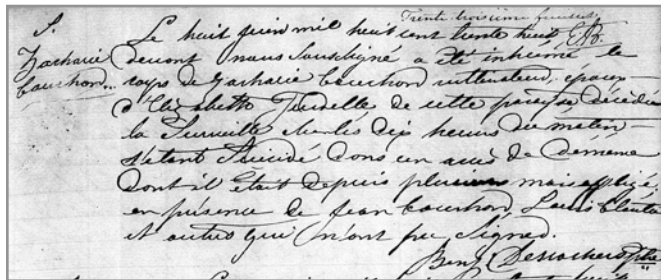 Trente-troisième feuillet
S. Le huit juin mil huit cent trente huit
Zacharie devant nous soussigné a été inhumé le
Cauchond corps de Zacharie Cauchond cultivateur, époux
d'Elizabeth de cette paroisse décédé
la surveille dix heures du matin
s'étant suicidé dans un accès de démence
dont il était depuis plusieurs mois affligé,
en présence de Jean Cauchond, Louis
et autres qui n'ont pu signer.
Benj Desrochers ptre